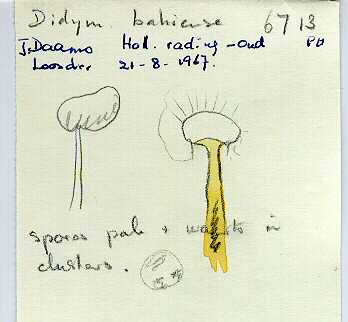 Didym. bahiense 6713
J. Daams Hol. rading-oud PD
Loosdr. 21-8-1967.
spores pale + warts in
clusters.